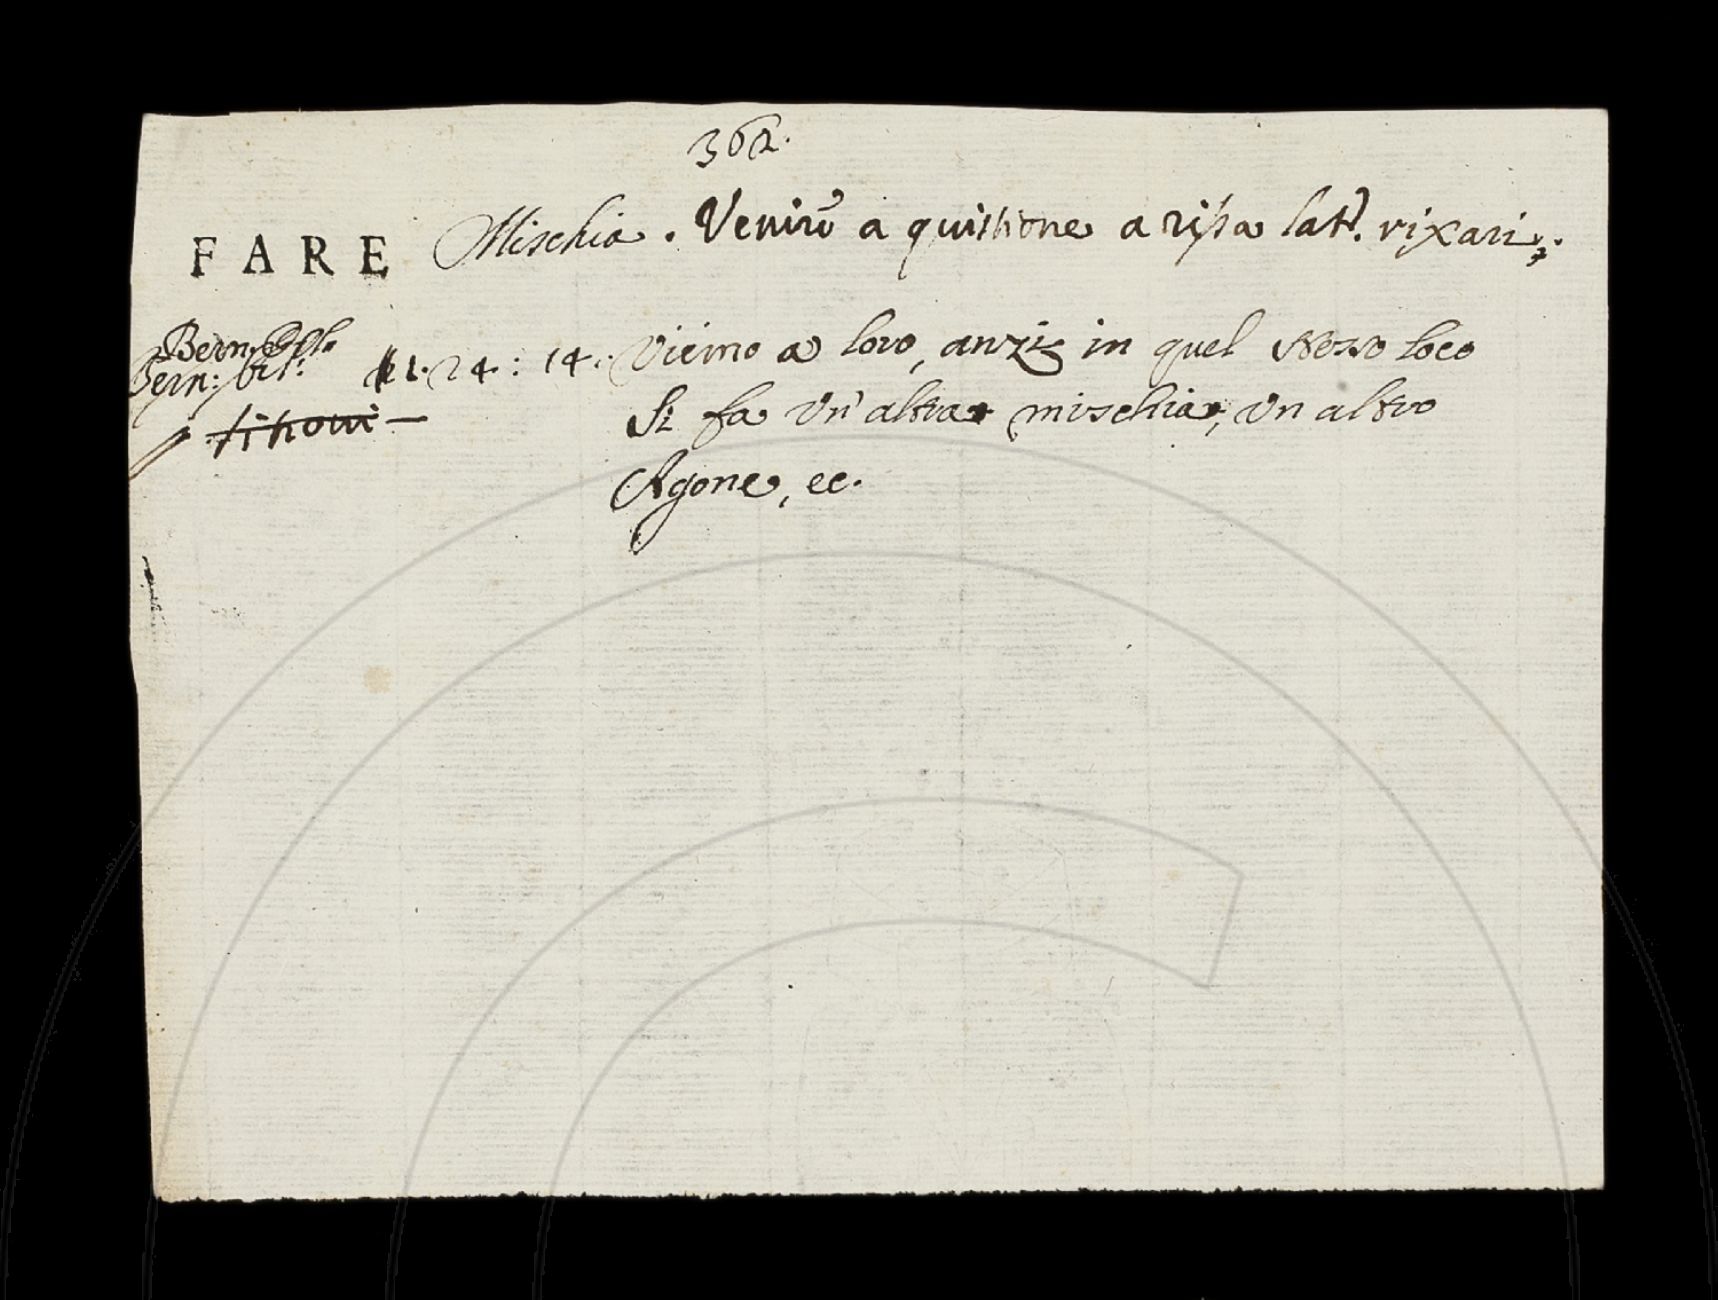 362.
FARE Mischia. Venire a quistione a rissa lat. rixari.
Bern.
Bern: 1.24:14. Vicino a loro, anzi in quel stesso loco
Si fa un'altra mischia, un altro
Agone, ec.